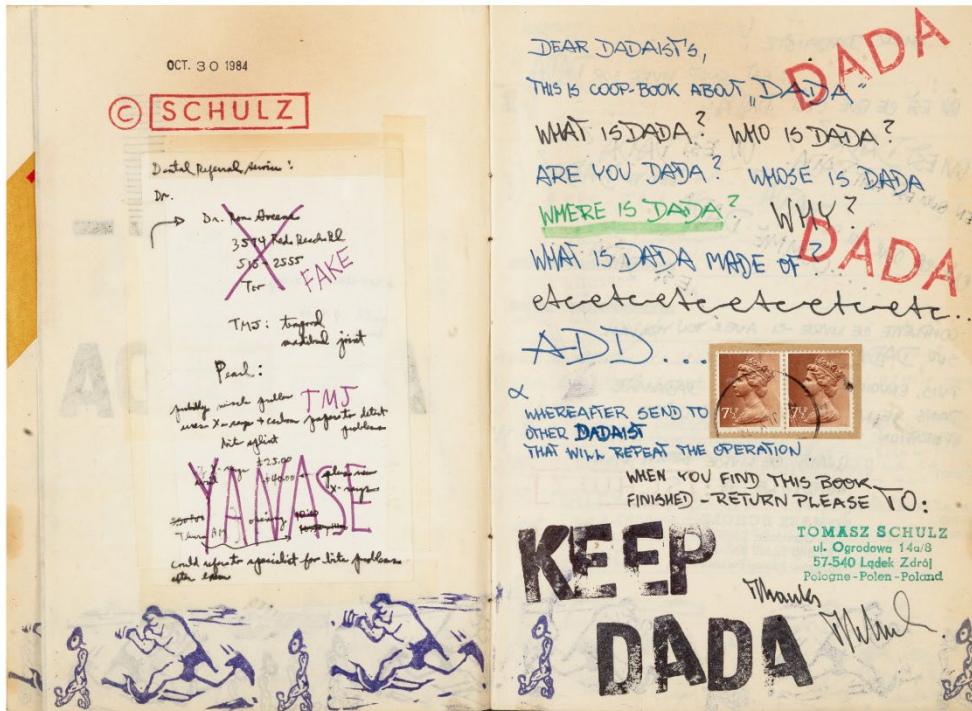 OCT. 30 1984
© SCHULZ
Dental Referral service:
Dr.
Dr. Ron Greene
3574 Redo Beach Bl
515-2555
Tor
FAKE
TMJ: temporal
joint
Pearl:
TMJ
probably muscle
uses X-rays + carbon papers to detect
bite problems
X-rays $25.00
$40.00
X-rays
YANASE
opening
Thurs AM
could refer to specialist for bite problems
after exam
DEAR DADAISTS,
THIS IS COOP-BOOK ABOUT „DADA“
DADA
WHAT IS DADA? WHO IS DADA?
ARE YOU DADA? WHOSE IS DADA
WHERE IS DADA? WHY?
DADA
WHAT IS DADA MADE OF?
etcetcetcetcetcetcetc...
ADD...
7½ 7½
α
WHEREAFTER SEND TO
OTHER DADAIST
THAT WILL REPEAT THE OPERATION
WHEN YOU FIND THIS BOOK
FINISHED - RETURN PLEASE TO:
TOMASZ SCHULZ
ul. Ogrodowa 14a/8
57-540 Lądek Zdrój
Pologne-Polen-Poland
KEEP
DADA
Thanks